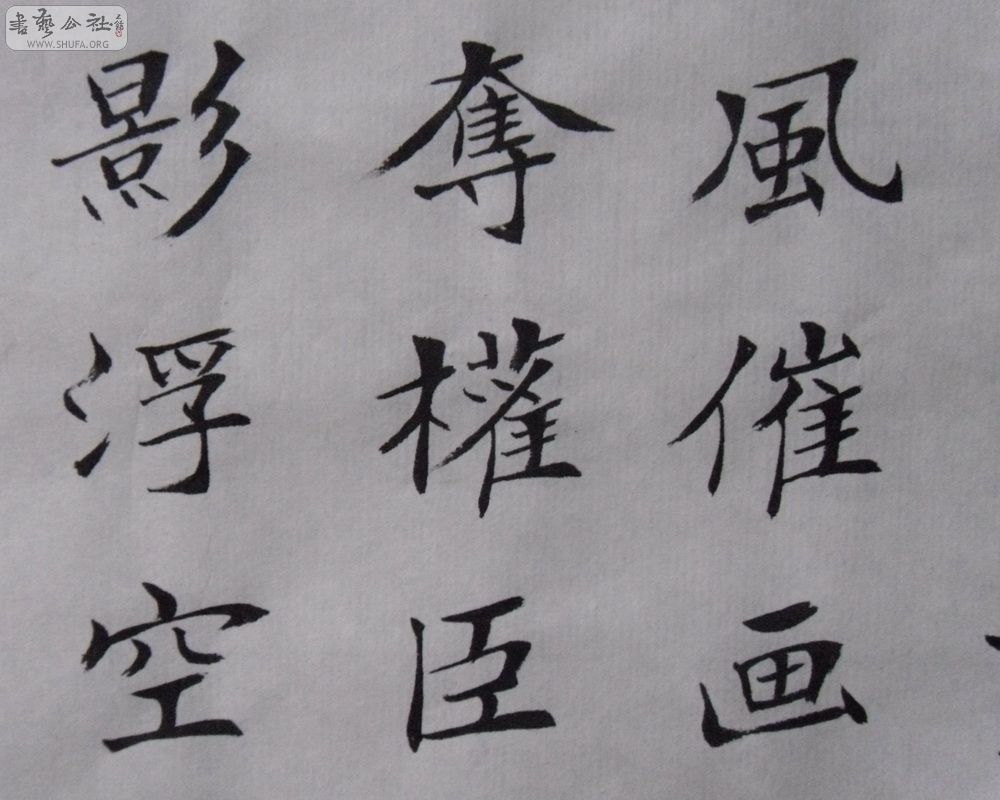 風催画
奪權臣
影浮空
書藝公社
WWW.SHUFA.ORG